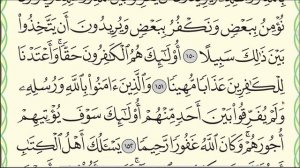 نُؤْمِنُ بِبَعْضٍ وَنَكْفُرُ بِبَعْضٍ وَيُرِيدُونَ أَن يَتَّخِذُوا۟
بَيْنَ ذَٰلِكَ سَبِيلًا ١٥٠ أُو۟لَٰٓئِكَ هُمُ ٱلْكَٰفِرُونَ حَقًّا وَأَعْتَدْنَا
لِلْكَٰفِرِينَ عَذَابًا مُّهِينًا ١٥١ وَٱلَّذِينَ ءَامَنُوا۟ بِٱللَّهِ وَرُسُلِهِۦ
وَلَمْ يُفَرِّقُوا۟ بَيْنَ أَحَدٍ مِّنْهُمْ أُو۟لَٰٓئِكَ سَوْفَ يُؤْتِيهِمْ
أُجُورَهُمْ وَكَانَ ٱللَّهُ غَفُورًا رَّحِيمًا ١٥٢ يَسْـَٔلُكَ أَهْلُ ٱلْكِتَٰبِ